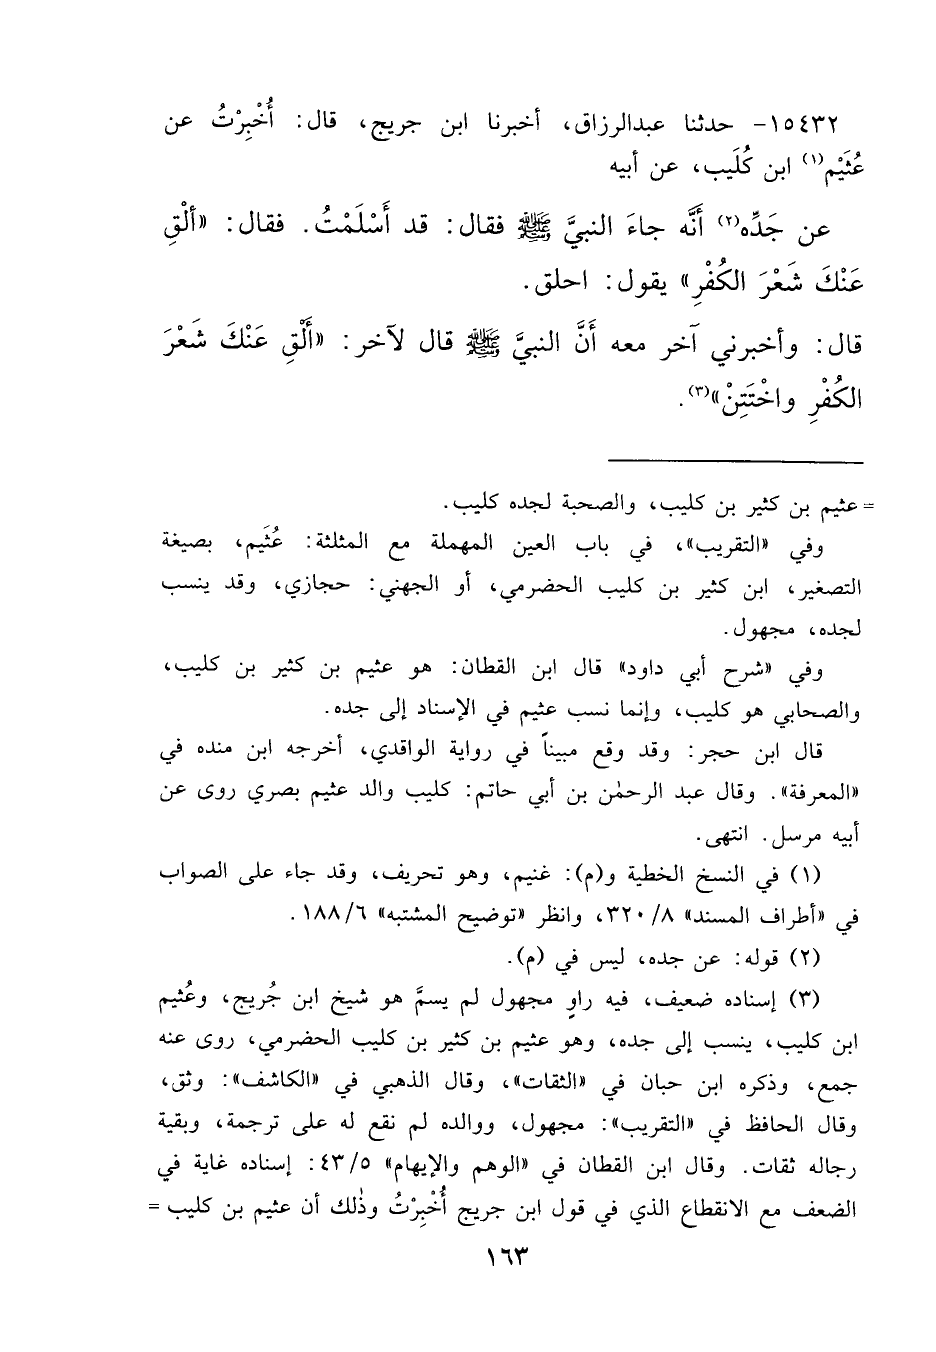 ١٥٤٣٢- حدثنا عبدالرزاق، أخبرنا ابن جريج، قال: أُخْبِرْتُ عن
عُثَيْم(١) ابن كُلَيب، عن أبيه
عن جَدِّه(٢) أَنَّه جاءَ النبيَّ ﷺ فقال: قد أَسْلَمْتُ. فقال: «أَلْقِ
عَنْكَ شَعْرَ الكُفْرِ» يقول: احلق.
قال: وأخبرني آخر معه أَنَّ النبيَّ ﷺ قال لآخر: «أَلْقِ عَنْكَ شَعْرَ
الكُفْرِ واخْتَتِنْ»(٣).
= عثيم بن كثير بن كليب، والصحبة لجده كليب.
وفي «التقريب»، في باب العين المهملة مع المثلثة: عُثَيم، بصيغة
التصغير، ابن كثير بن كليب الحضرمي، أو الجهني: حجازي، وقد ينسب
لجده، مجهول.
وفي «شرح أبي داود» قال ابن القطان: هو عثيم بن كثير بن كليب،
والصحابي هو كليب، وإنما نسب عثيم في الإسناد إلى جده.
قال ابن حجر: وقد وقع مبيناً في رواية الواقدي، أخرجه ابن منده في
«المعرفة». وقال عبد الرحمٰن بن أبي حاتم: كليب والد عثيم بصري روى عن
أبيه مرسل. انتهى.
(١) في النسخ الخطية و(م): غنيم، وهو تحريف، وقد جاء على الصواب
في «أطراف المسند» ٨/ ٣٢٠، وانظر «توضيح المشتبه» ٦/ ١٨٨.
(٢) قوله: عن جده، ليس في (م).
(٣) إسناده ضعيف، فيه راوٍ مجهول لم يسمَّ هو شيخ ابن جُريج، وعُثيم
ابن كليب، ينسب إلى جده، وهو عثيم بن كثير بن كليب الحضرمي، روى عنه
جمع، وذكره ابن حبان في «الثقات»، وقال الذهبي في «الكاشف»: وثق،
وقال الحافظ في «التقريب»: مجهول، ووالده لم نقع له على ترجمة، وبقية
رجاله ثقات. وقال ابن القطان في «الوهم والإيهام» ٥/ ٤٣: إسناده غاية في
الضعف مع الانقطاع الذي في قول ابن جريج أُخْبِرْتُ وذٰلك أن عثيم بن كليب =
١٦٣